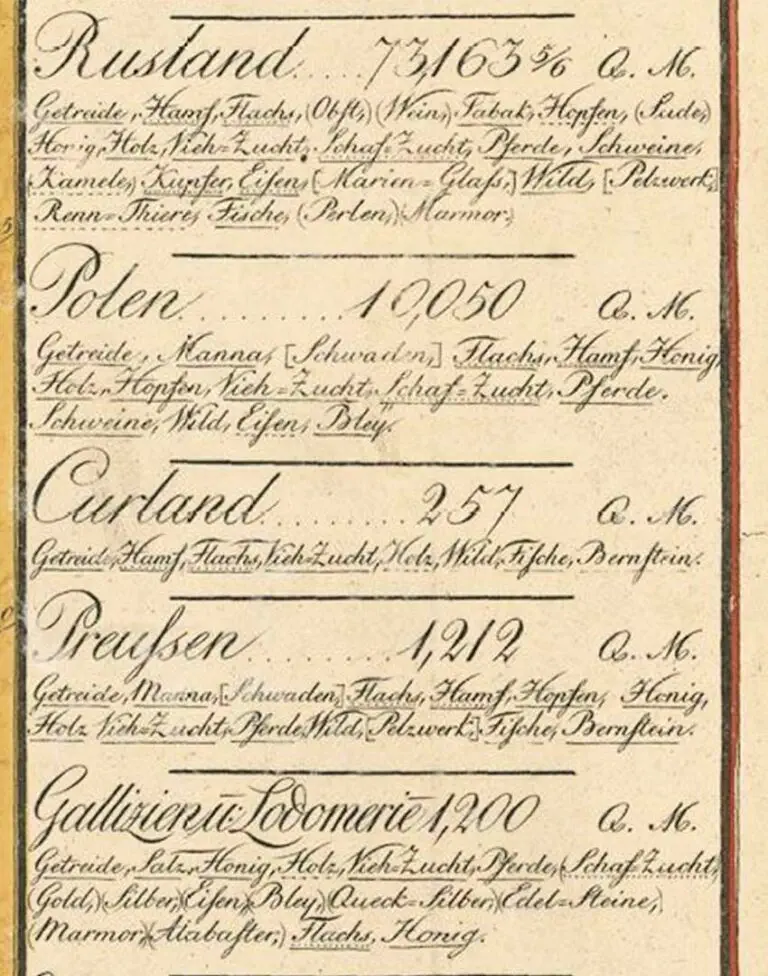 Rusland.....73,163 5/6 Q. M.
Getreide, Hamf, Flachs, (Obst,) (Wein,) Tabak, Hopfen, (Sude,)
Honig, Holz, Vieh=Zucht, Schaf=Zucht, Pferde, Schweine,
(Kamele,) Kupfer, Eisen, [Marien=Glaſs,] Wild, [Pelzwerk,]
Renn=Thiere, Fische, (Perlen,) (Marmor.)
Polen.........10,050 Q. M.
Getreide, Manna, [Schwaden,] Flachs, Hamf, Honig,
Holz, Hopfen, Vieh=Zucht, Schaf=Zucht, Pferde.
Schweine, Wild, Eisen, Bley.
Curland.........257 Q. M.
Getreide, Hamf, Flachs, Vieh=Zucht, Holz, Wild, Fische, Bernstein.
Preuſsen.........1,212 Q. M.
Getreide, Manna, [Schwaden,] Flachs, Hamf, Hopfen, Honig,
Holz Vieh=Zucht, Pferde, Wild, [Pelzwerk,] Fische, Bernstein.
Gallizien u: Lodomerie 1,200 Q. M.
Getreide, Salz, Honig, Holz, Vieh=Zucht, Pferde, Schaf=Zucht,
(Gold,) (Silber,) (Eisen,) Bley,) (Queck=Silber,) (Edel=Steine,)
(Marmor,) (Alabaster,) Flachs, Honig.